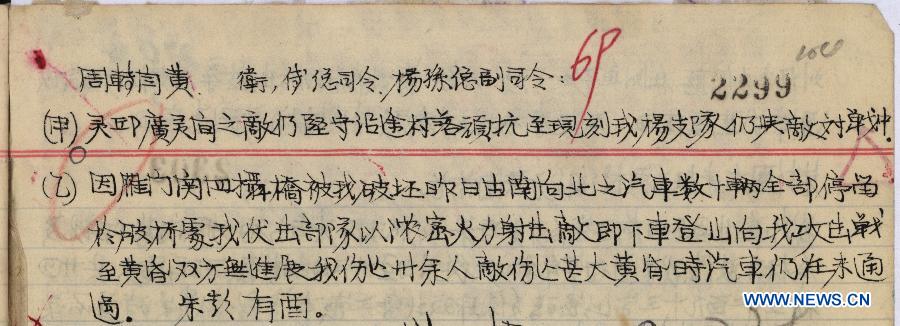 69
2299
周轉閻黄. 衛,傅總司令.楊孫總副司令:
(甲)灵邱廣灵间之敵仍坚守沿途村落頑抗至現刻我楊支隊仍與敵对戰中.
(乙)因雁门関四攝橋被我破坏昨日由南向北之汽車数十輛全部停留
於破桥處我伏击部隊以濃密火力射击敵即下車登山向我攻击戰
至黄昏双方無進展我伤亡卅余人敵伤亡甚大黄昏時汽車仍在未通
過. 朱彭 有酉。
WWW.NEWS.CN